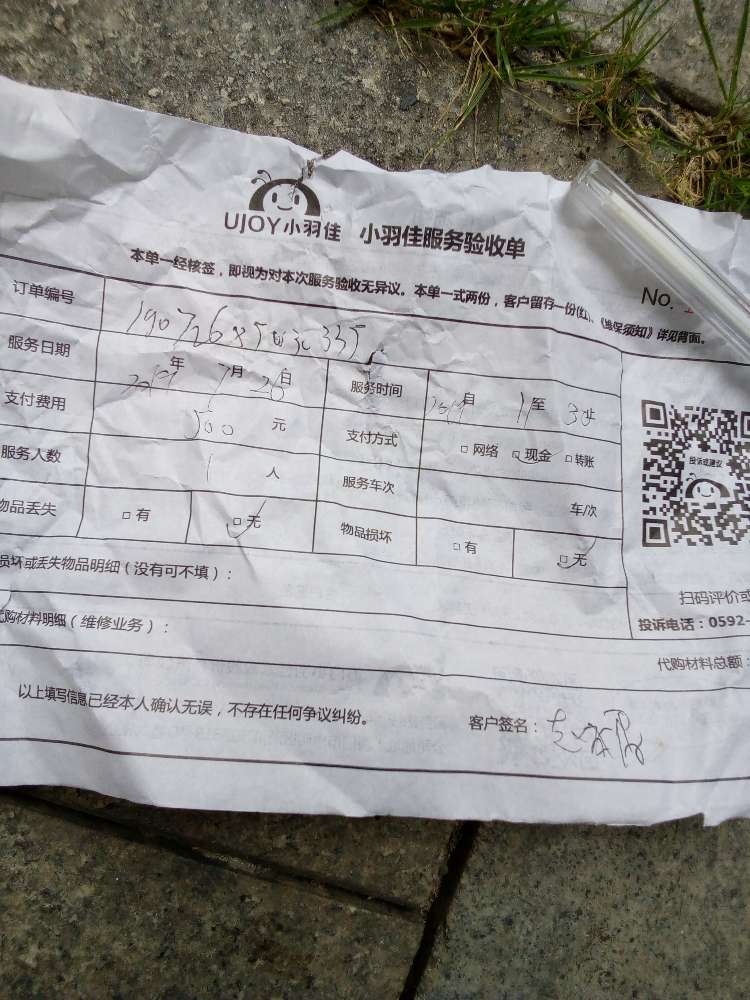 UJOY小羽佳 小羽佳服务验收单
No.
本单一经核签，即视为对本次服务验收无异议。本单一式两份，客户留存一份(红)、《维保须知》详见背面。
订单编号
服务日期 2019年 7月 26日 服务时间 自 至
支付费用 500 元 支付方式 □网络 □现金 □转账
服务人数 1 人 服务车次 车/次
物品丢失 □有 □无 物品损坏 □有 □无
投诉或建议
损坏或丢失物品明细（没有可不填）：
扫码评价或
投诉电话：0592-
代购材料明细（维修业务）：
代购材料总额：
以上填写信息已经本人确认无误，不存在任何争议纠纷。 客户签名：